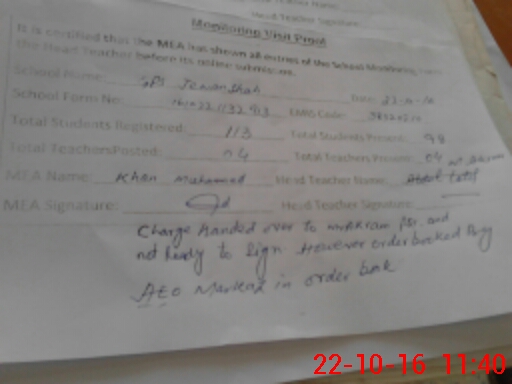 Head Teacher Signature
Monitoring Visit Proof
It is certified that the MEA has shown all entries of the School Monitoring Form
the Head Teacher before its online submission.
School Name: GPS Jewan Shah Date: 22-10-16
School Form No: EMIS Code:
Total Students Registered: 113 Total Students Present: 98
Total TeachersPosted: 04 Total Teachers Present: 04
MEA Name: Khan Muhammad Head Teacher Name:
MEA Signature: Head Teacher Signature:
Charge Handed over to Mukaram PST and
not Ready to Sign However order booked By
AEO Marked in order book
22-10-16 11:40